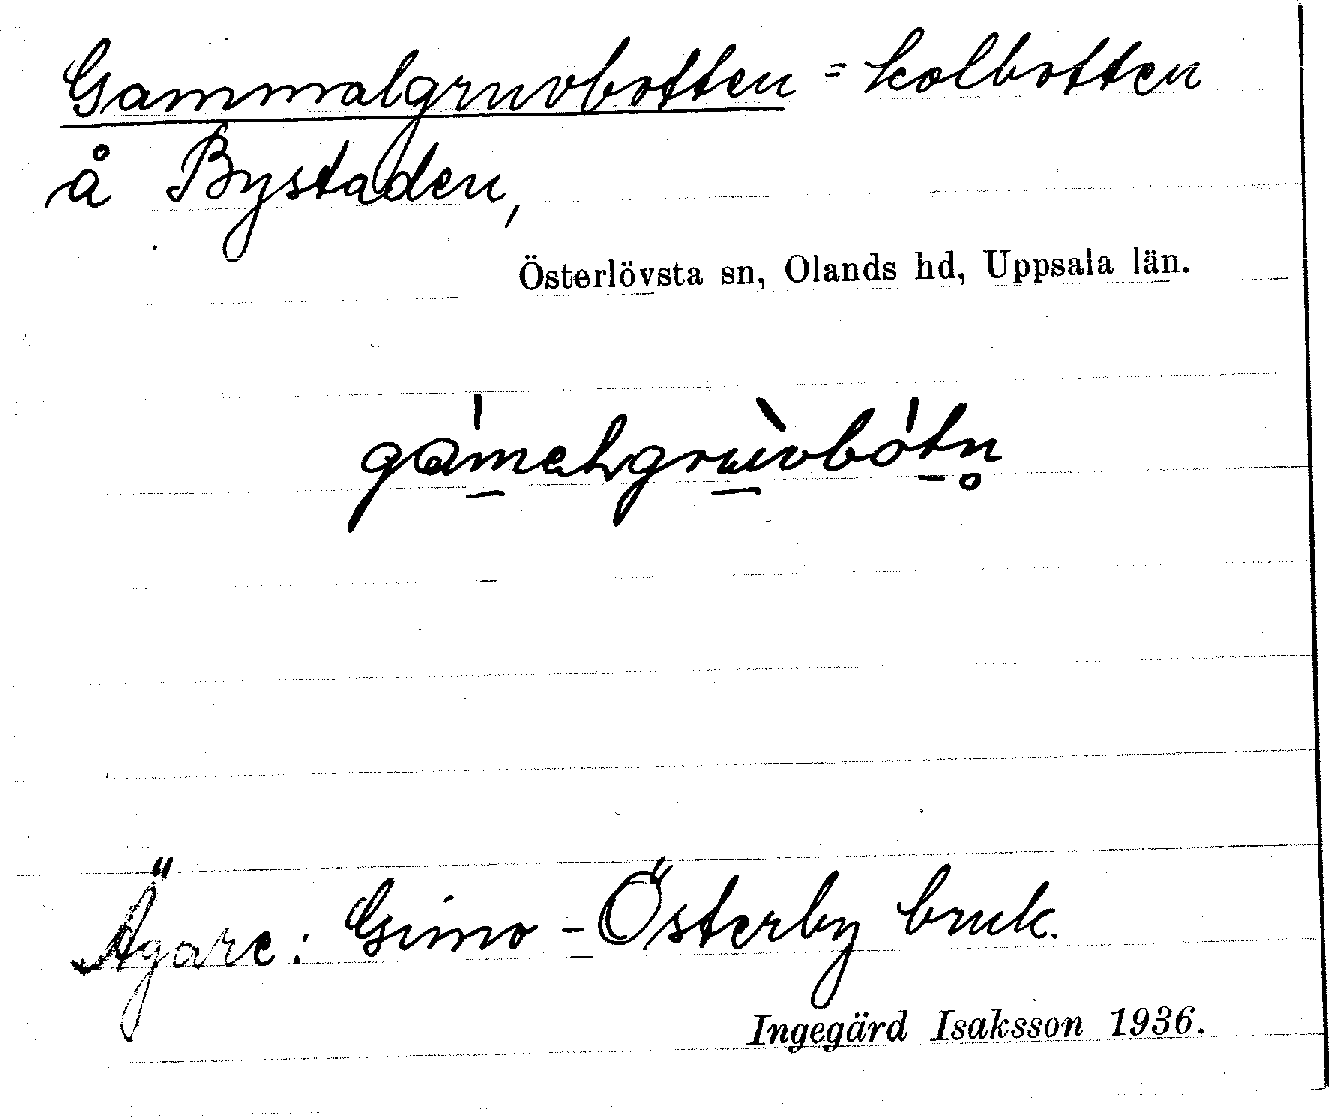 Gammalgruvbotten = kolbotten
å Bystaden,
Österlövsta sn, Olands hd, Uppsala län.
Ägare: Gimo-Österby bruk.
Ingegärd Isaksson 1936.